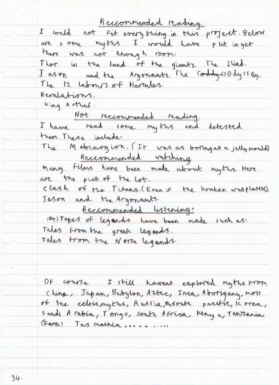 Reccommended reading
I could not fit everything in this project. Below
are some myths I would have put in yet
there was not enough room.
Thor in the land of the giants. The Iliad.
Jason and the Argonauts. The Oddyssey.
The 12 labours of
Revelations.
King
Not recommended reading
I have read some myths and detested
them. These include:
The Mabinogion. (It was as boring as a jellymould)
Reccommended watching
Many films have been made about myths. Here
are the pick of the lot.
Clash of the Titans (Even if the kraken was plastic)
Jason and the Argonauts
Reccommended listening:
Tapes of legends have been made such as:
Tales from the greek legends.
Tales from the Norse legends.
Of course I still havent explored myths from
China, Japan, Babylon, Aztec, Inca, Aborigany, most
of the celtic myths, Russia,
Saudi Arabia, Tonga, South Africa, Kenya, Tanzania
34.